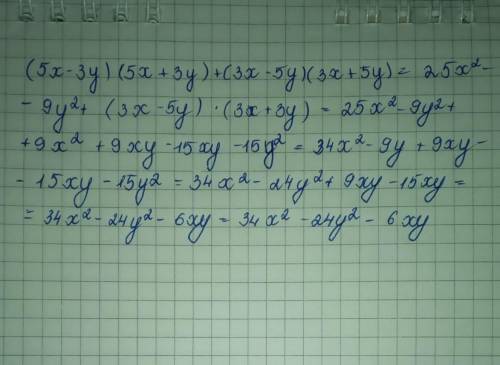 (5x-3y)(5x+3y)+(3x-5y)(3x+5y)= 25x²-
- 9y²+ (3x-5y)·(3x+3y) = 25x²-9y²+
+9x² + 9xy -15xy -15y² = 34x²-9y + 9xy-
- 15xy - 15y² = 34x²- 24y²+ 9xy -15xy =
= 34x²- 24y² - 6xy = 34x² -24y² - 6xy